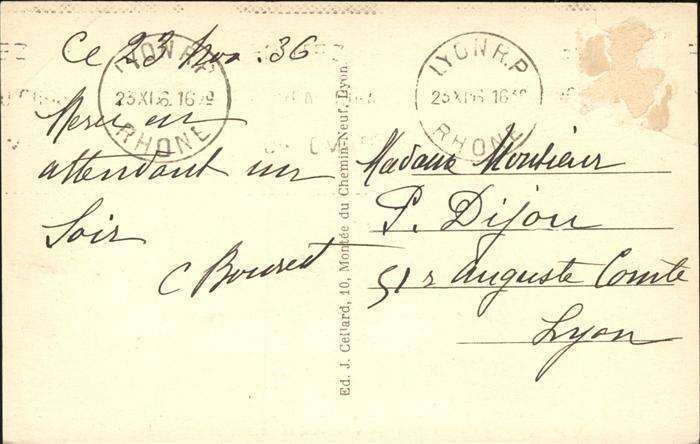 Ce 23 Nov. 36
LYON R.P
23 XI 36. 16
RHONE
Merci en
attendant un
Soir
C Bouret
Ed. J. Cellard, 10, Montée du Chemin-Neuf, Lyon.
LYON R.P
23 XI 36. 16
RHONE
Madame Monsieur
P. Dijou
51 r Auguste Comte
Lyon